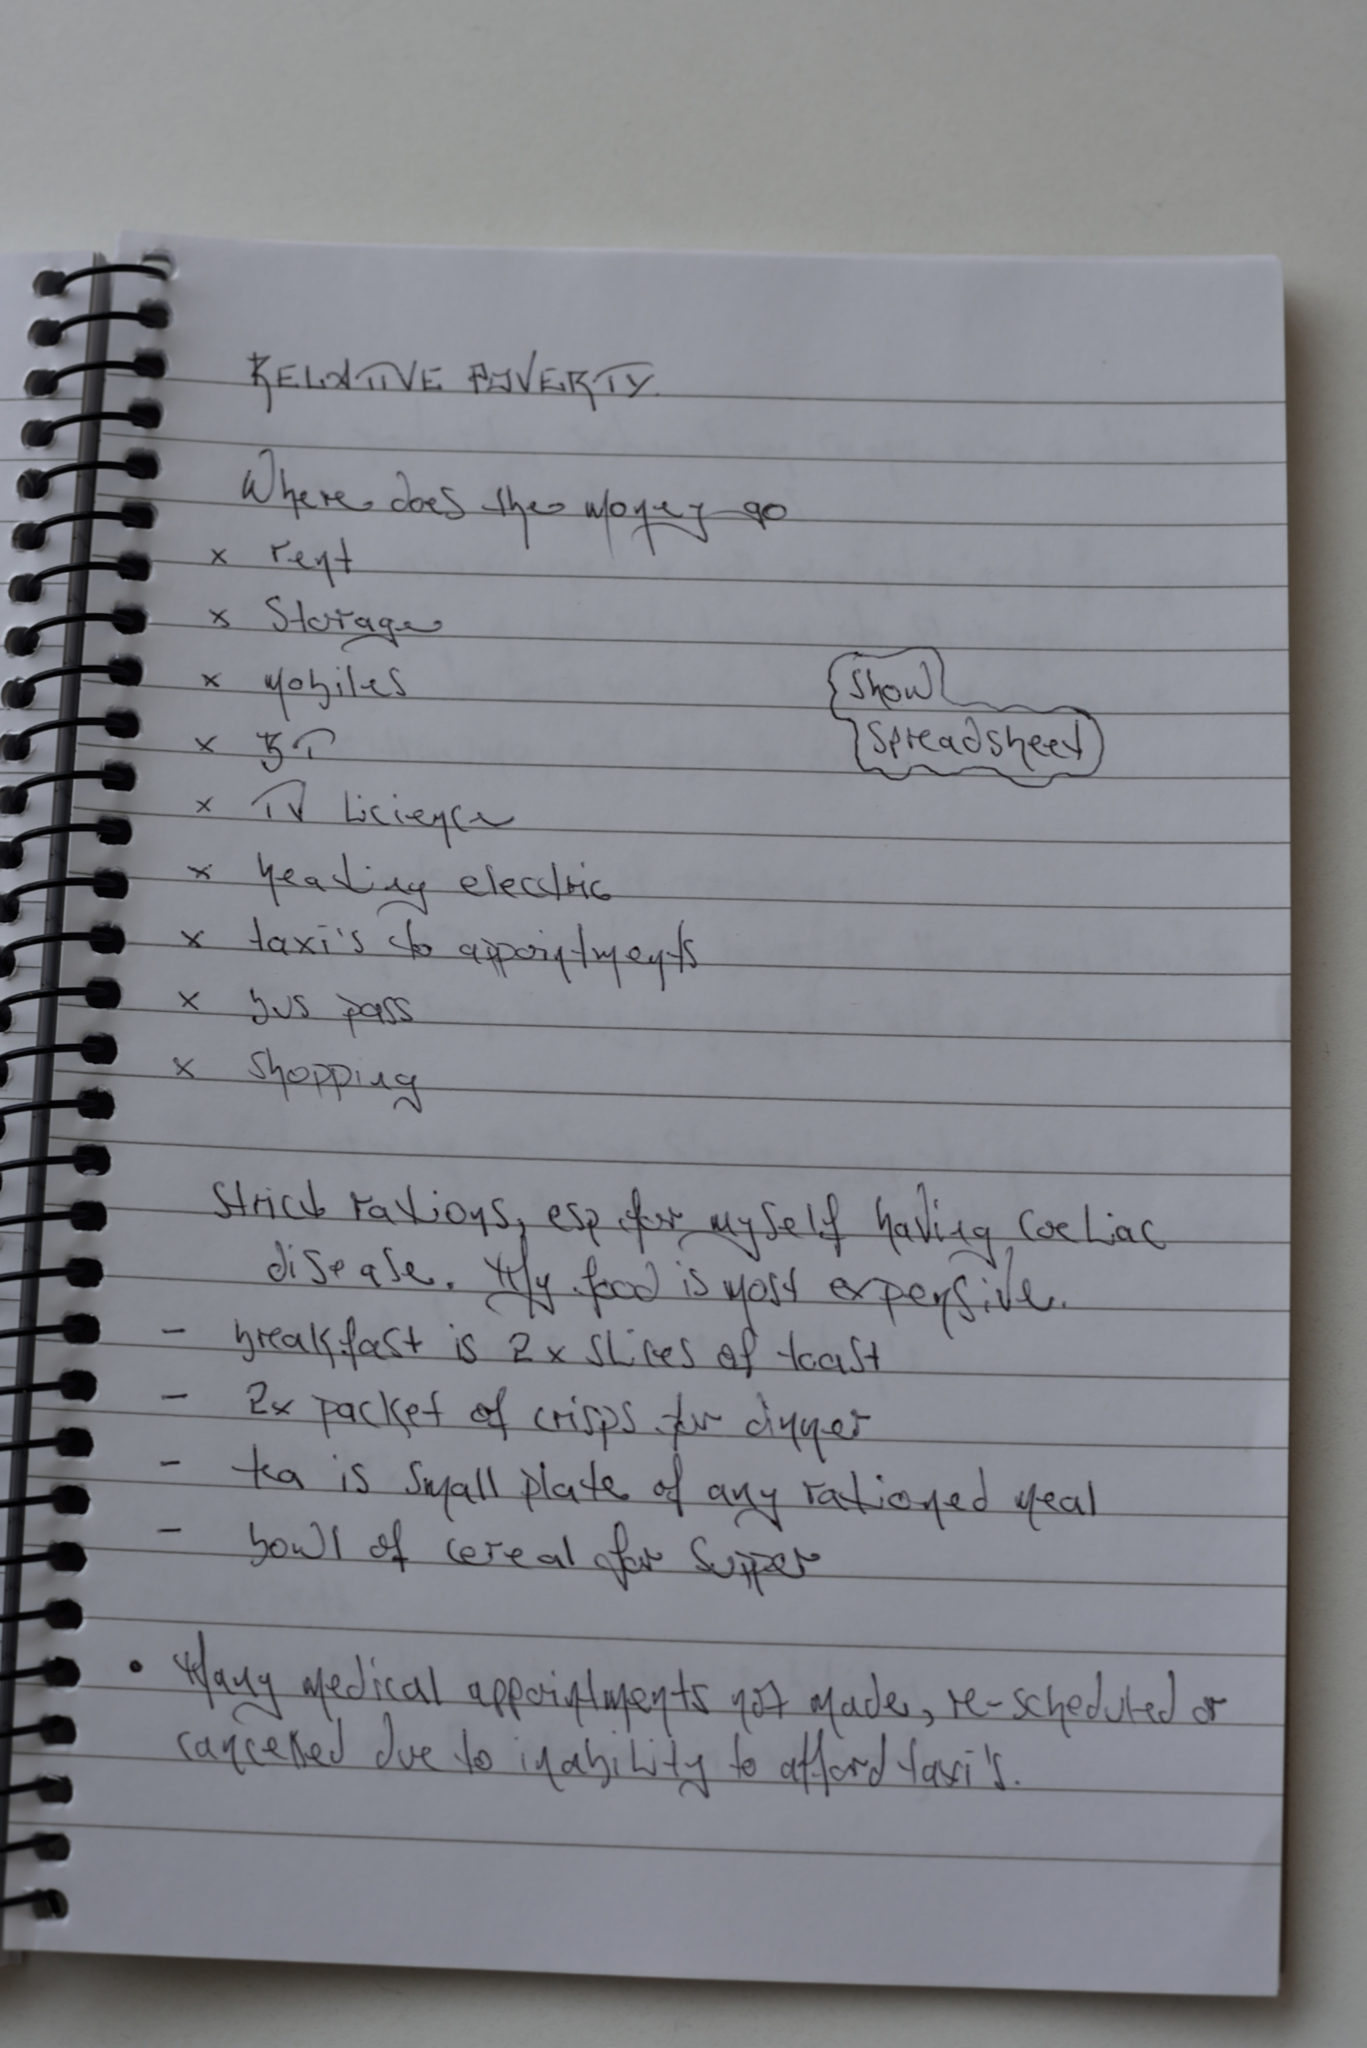 RELATIVE POVERTY.
Where does the money go
x rent
x Storage
x mobiles
x BT
x TV Licience
x heating electric
x taxi's to appointments
x bus pass
x shopping
Show
Spreadsheet
Strict rations, esp for myself having coeliac
disease. My food is most expensive.
- breakfast is 2x slices of toast
- 2x packet of crisps for dinner
- tea is small plate of any rationed meal
- bowl of cereal for supper
• Many medical appointments not made, re-scheduled or
cancelled due to inability to afford taxi's.